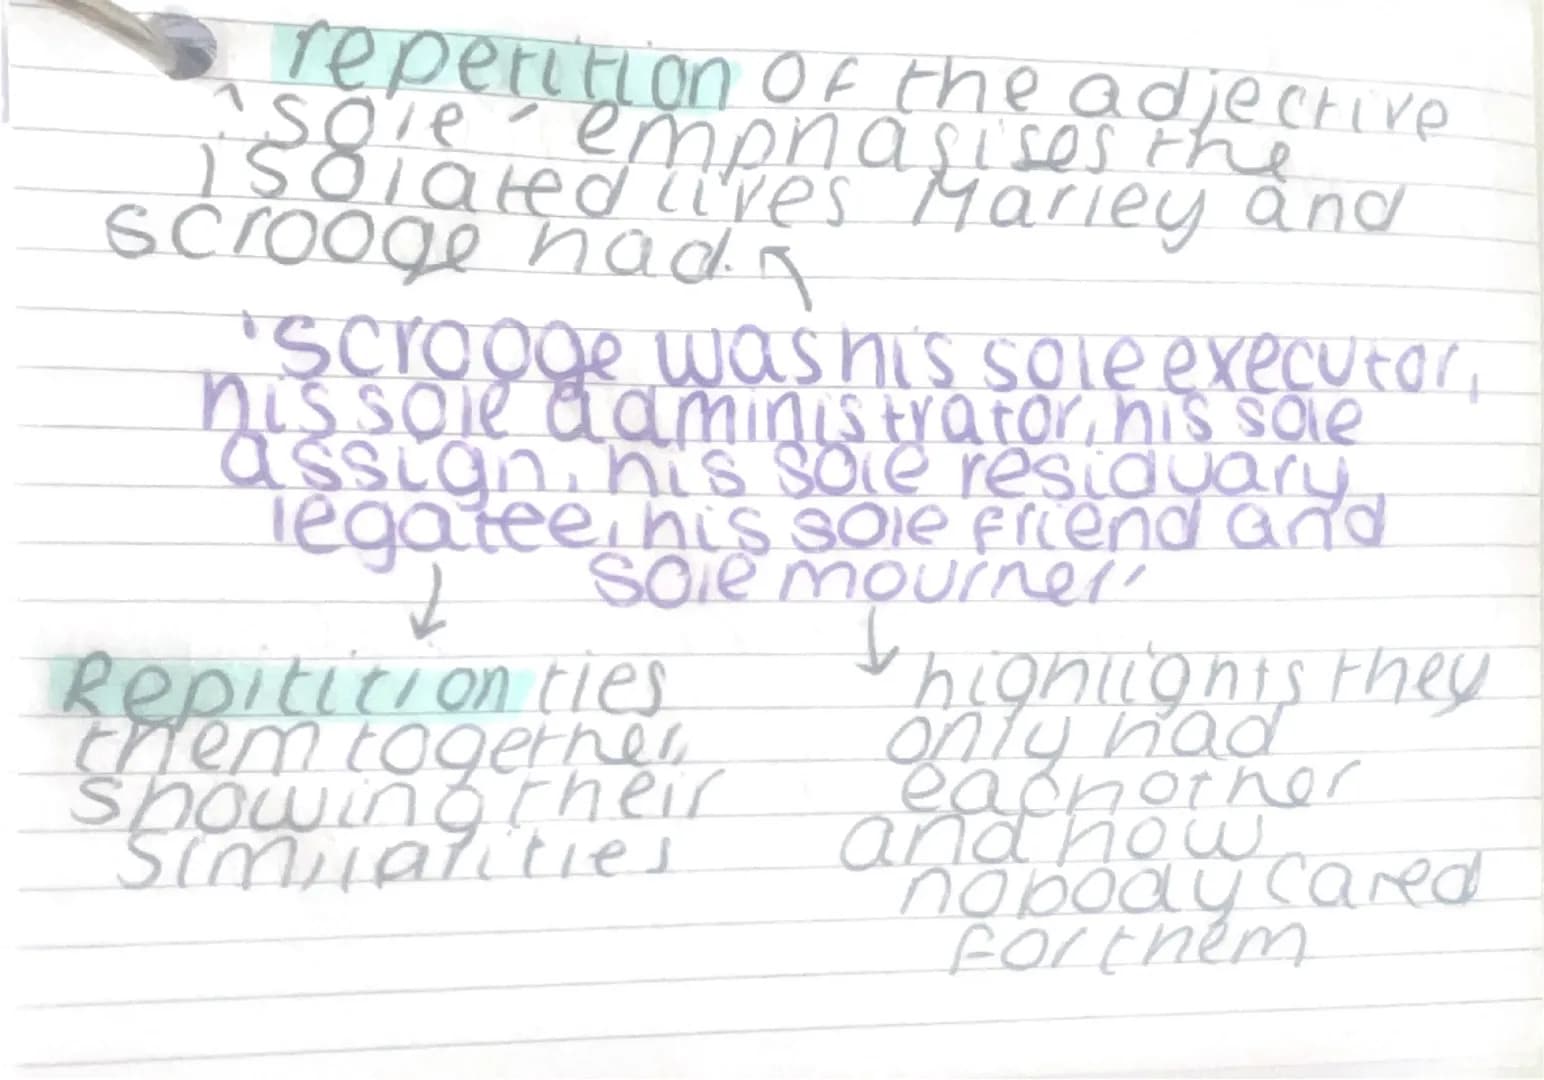 repetition of the adjective
'sole' emphasises the
isolated lives Marley and
scrooge had.
'scrooge was his sole executor,
his sole administrator, his sole
assign, his sole residuary
legatee, his sole friend and
sole mourner'
Repitition ties
them together,
showing their
similarities
highlights they
only had
eachother
and how
nobody cared
for them